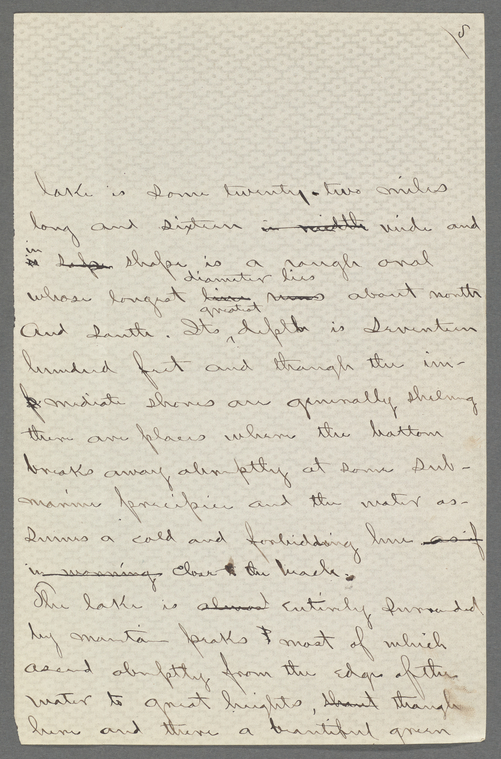 5
lake is some twenty-two miles
long and sixteen in width wide and
in
is shape shape is a rough oval
diameter lies
whose longest line runs about north
greatest
and south. Its ^ depth is seventeen
hundred feet and though the im-
mediate shores are generally shelving
there are places where the bottom
breaks away abruptly at some sub-
marine precipice and the water as-
sumes a cold and forbidding hue as if
in warning close to the beach.
The lake is almost entirely surrounded
by mountain peaks & most of which
ascend abruptly from the edge of the
water to great heights, though
here and there a beautiful green